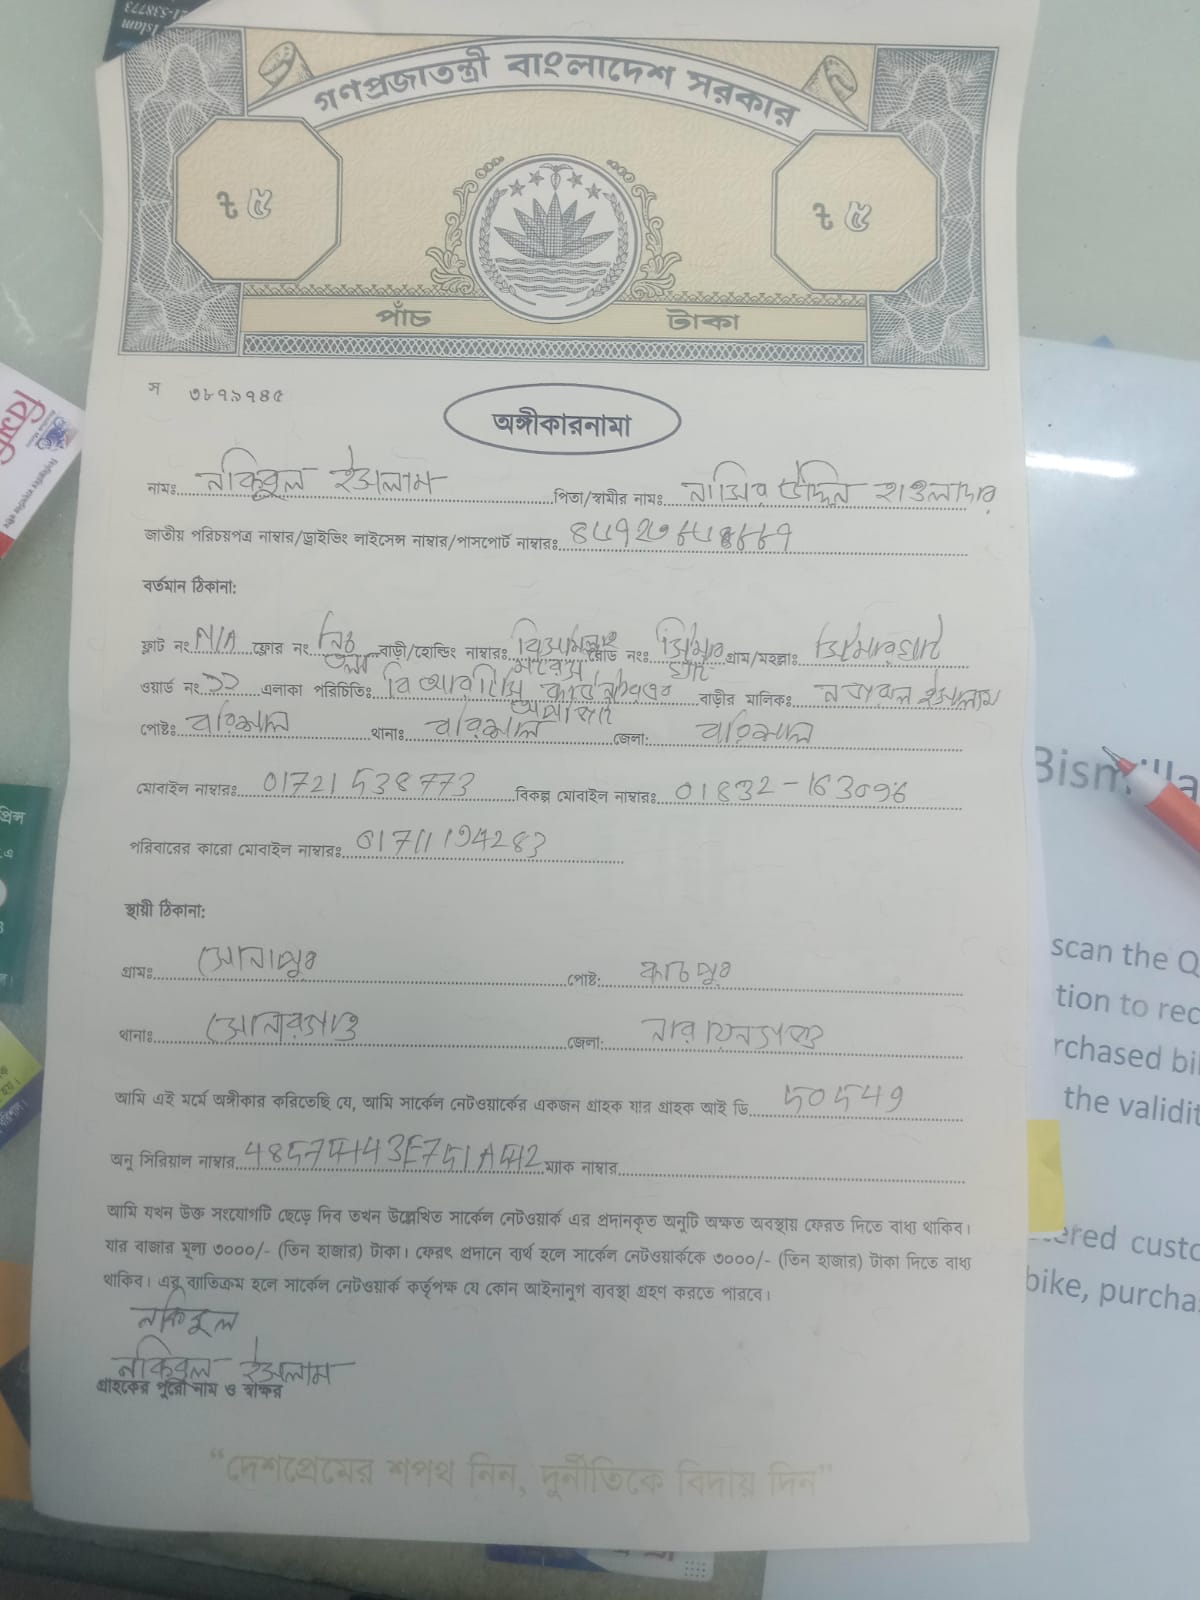 গণপ্রজাতন্ত্রী বাংলাদেশ সরকার
৳ ৫
৳ ৫
পাঁচ টাকা
স ৩৮৭৯৭৪৫
অঙ্গীকারনামা
নামঃ নকিবুল ইসলাম পিতা/স্বামীর নাম: নাসির উদ্দিন হাওলাদার
জাতীয় পরিচয়পত্র নাম্বার/ড্রাইভিং লাইসেন্স নাম্বার/পাসপোর্ট নাম্বারঃ
বর্তমান ঠিকানা:
ফ্লাট নং N/A ফ্লোর নং নিচ তলা বাড়ী/হোল্ডিং নাম্বার: রোড নং: গ্রাম/মহল্লা:
ওয়ার্ড নং ১১ এলাকা পরিচিতি: বাড়ীর মালিক: ইসলাম
পোষ্টঃ বরিশাল থানাঃ বরিশাল জেলা: বরিশাল
মোবাইল নাম্বারঃ 01721 538773 বিকল্প মোবাইল নাম্বারঃ 01832-163096
পরিবারের কারো মোবাইল নাম্বারঃ
স্থায়ী ঠিকানা:
গ্রামঃ সোনাপুর পোষ্ট: কাচপুর
থানাঃ সোনারগাও জেলা: নারায়নগঞ্জ
আমি এই মর্মে অঙ্গীকার করিতেছি যে, আমি সার্কেল নেটওয়ার্কের একজন গ্রাহক যার গ্রাহক আই ডি 50549
অনু সিরিয়াল নাম্বার ম্যাক নাম্বার
আমি যখন উক্ত সংযোগটি ছেড়ে দিব তখন উল্লেখিত সার্কেল নেটওয়ার্ক এর প্রদানকৃত অনুটি অক্ষত অবস্থায় ফেরত দিতে বাধ্য থাকিব।
যার বাজার মূল্য ৩০০০/- (তিন হাজার) টাকা। ফেরৎ প্রদানে ব্যর্থ হলে সার্কেল নেটওয়ার্ককে ৩০০০/- (তিন হাজার) টাকা দিতে বাধ্য
থাকিব। এর ব্যাতিক্রম হলে সার্কেল নেটওয়ার্ক কর্তৃপক্ষ যে কোন আইনানুগ ব্যবস্থা গ্রহণ করতে পারবে।
নকিবুল
নকিবুল ইসলাম
গ্রাহকের পুরো নাম ও স্বাক্ষর
“দেশপ্রেমের শপথ নিন, দুর্নীতিকে বিদায় দিন”
scan the Q
tion to rec
rchased bi
the validit
ered custo
bike, purcha